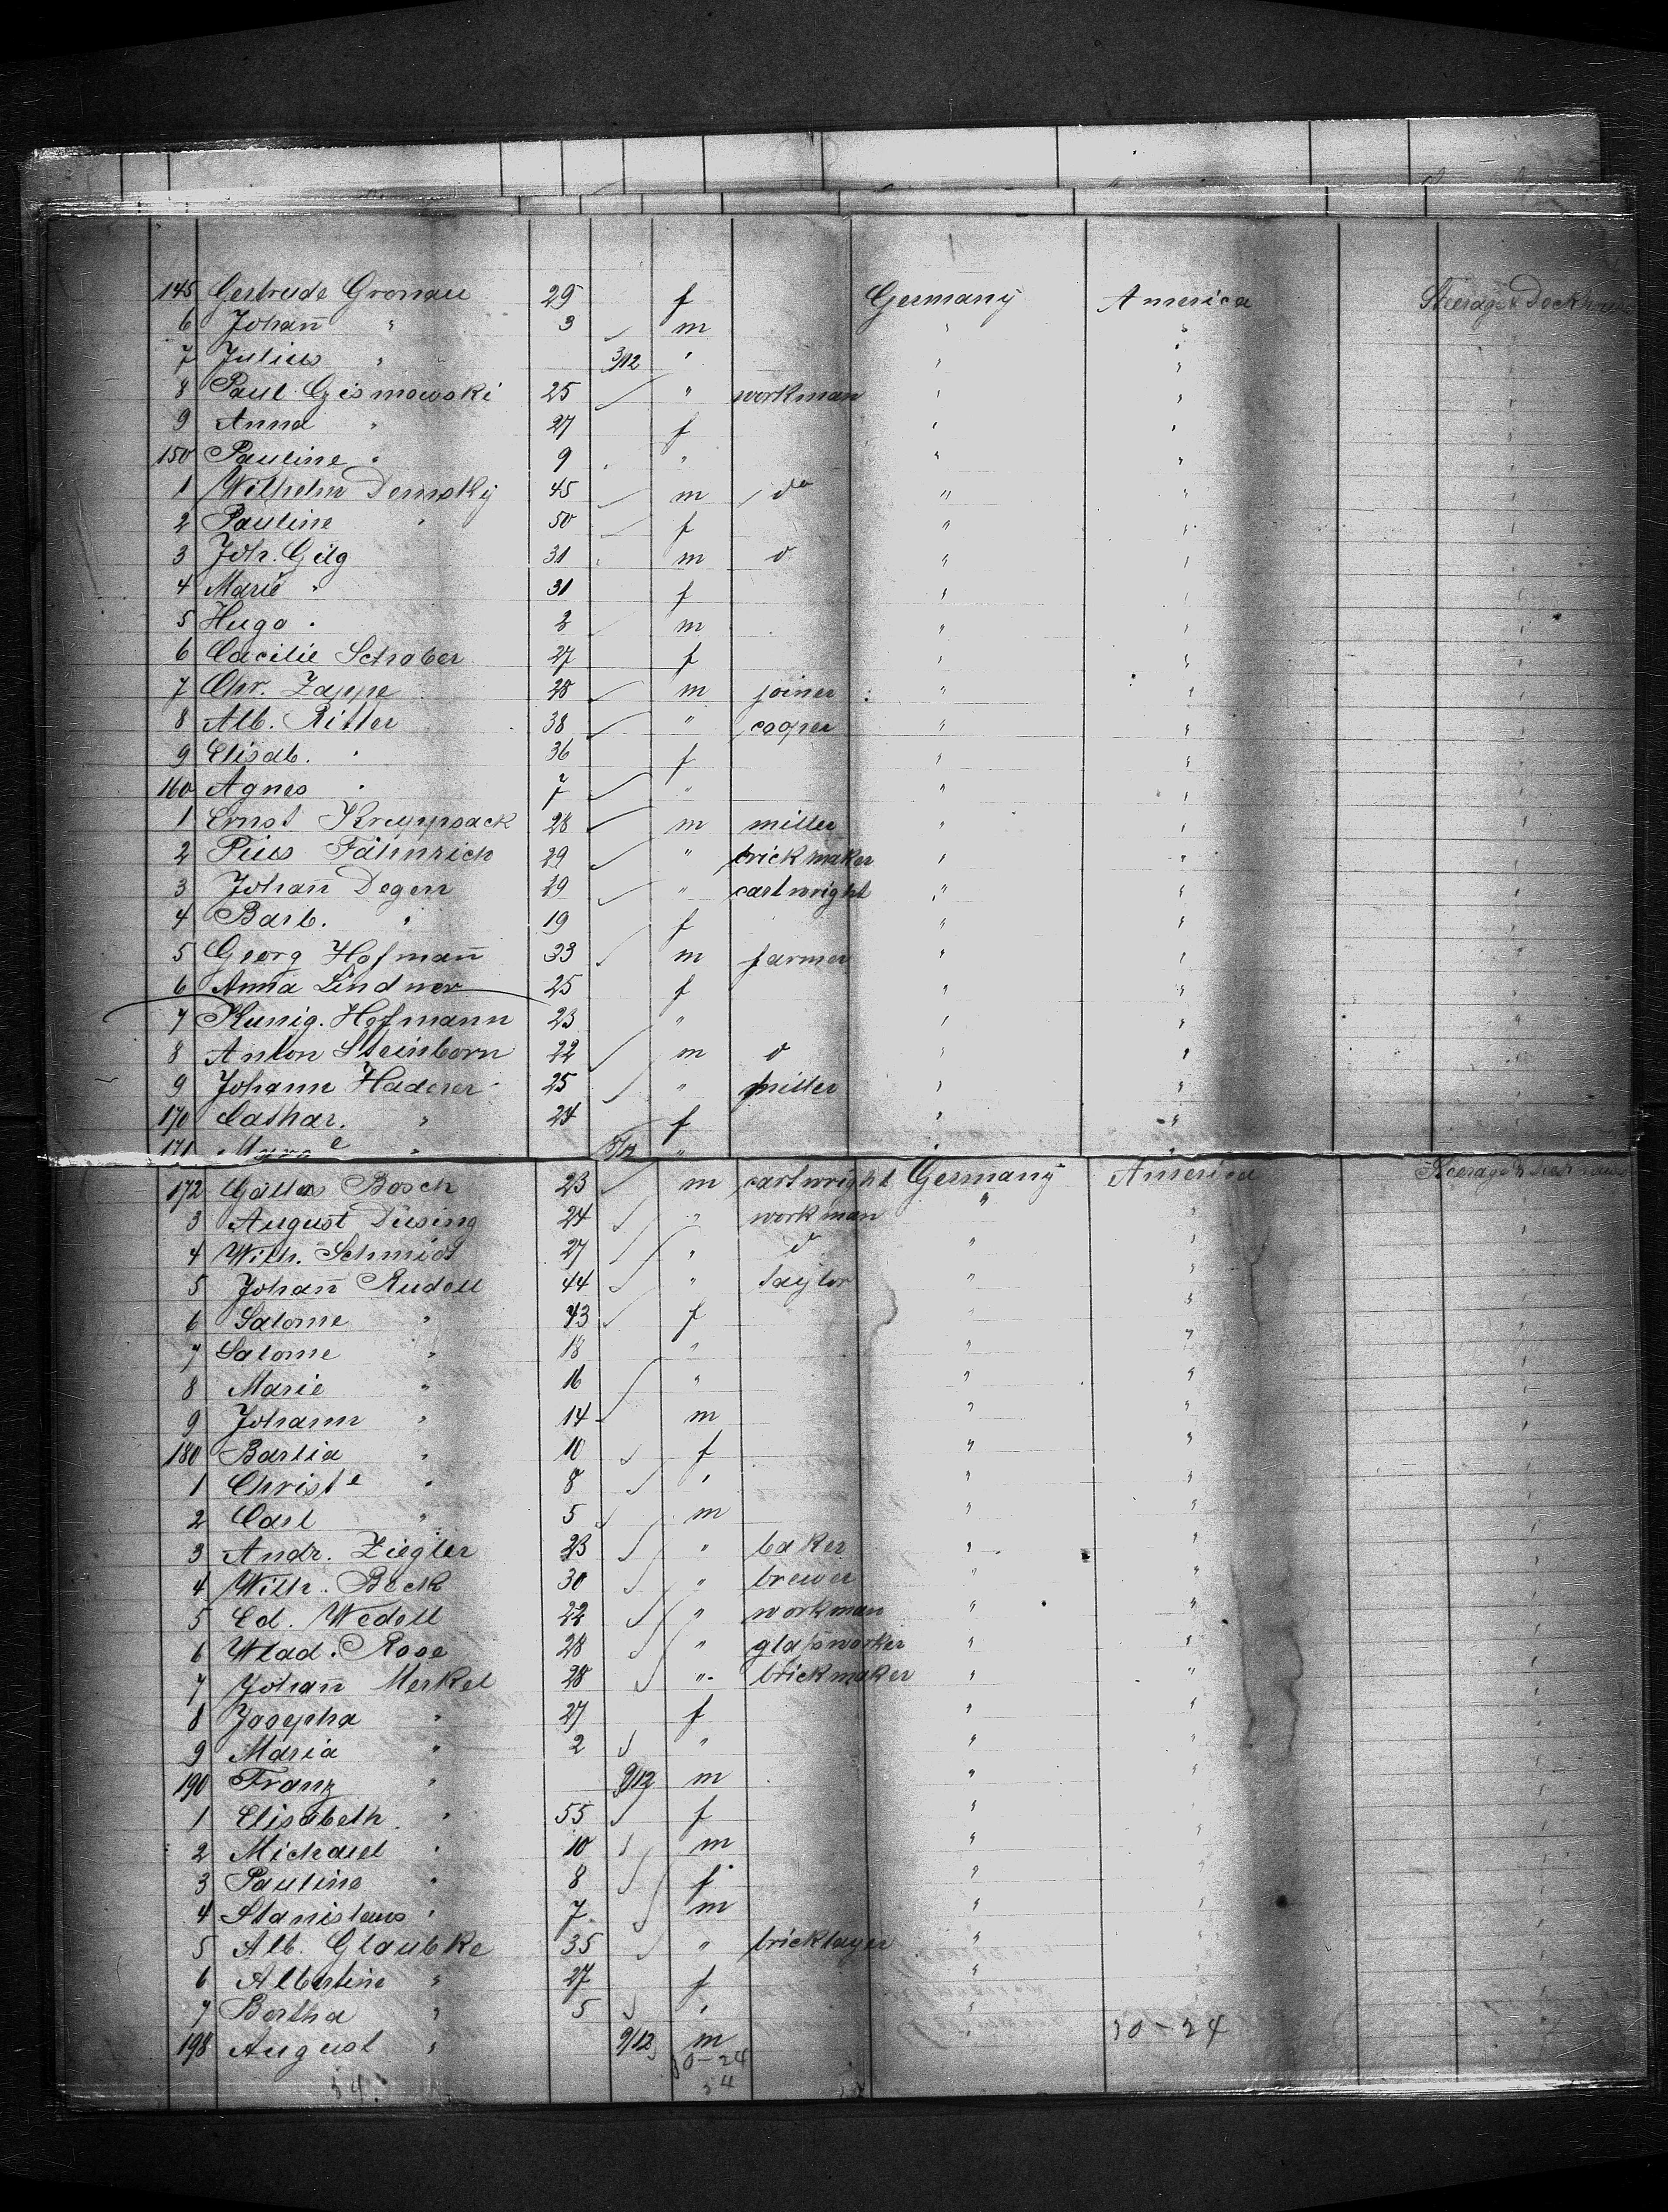 145 Gertrude Gronau 29 f Germany America Steerage & Deckhouse
6 Johañ " 3 m " "
7 Julius " 3/12 " " "
8 Paul Gzismowski 25 " workman " "
9 Anna " 27 f " "
150 Pauline " 9 " " "
1 Wilhelm Demsky 45 m do " "
2 Pauline " 50 f " "
3 Joh. Gilg 31 m o " "
4 Marie " 31 f " "
5 Hugo " 2 m " "
6 Cacilie Schober 27 f " "
7 Chr. Zappe 28 m joiner " "
8 Alb. Ritter 38 " cooper " "
9 Elisab. " 36 f " "
160 Agnes " 7 " " "
1 Ernst Krumpsack 28 m miller " "
2 Pius Fähnrich 29 " brickmaker " "
3 Johañ Degen 29 " cartwright " "
4 Barb. " 19 f " "
5 Georg Hofmañ 33 m farmer " "
6 Anna Lindner 25 f " "
7 Kunig. Hofmann 23 " " "
8 Anton Steinborn 22 m o " "
9 Johann Haderer 25 " miller " "
170 Cathar. " 24 f " "
171 " "
172 Gallus Bosch 23 m cartwright Germany America Steerage & Deckhouse
3 August Düsing 24 " workman " "
4 Wilh. Schmidt 27 " d " "
5 Johañ Rudell 44 " taylor " "
6 Salome " 43 f " "
7 Salome " 18 " " "
8 Marie " 16 " " "
9 Johann " 14 m " "
180 Barlia " 10 f " "
1 Christe " 8 " " "
2 Carl " 5 m " "
3 Andr. Ziegler 23 " baker " "
4 Wilh. Beck 30 " brewer " "
5 Ed. Wedell 22 " workman " "
6 Wlad. Rose 28 " glassworker " "
7 Johañ Merkel 28 " brickmaker " "
8 Josepha " 27 f " "
9 Maria " 2 " " "
190 Franz " 9/12 m " "
1 Elisabeth " 55 f " "
2 Michael " 10 m " "
3 Pauline " 8 f " "
4 Stanislaus " 7 m " "
5 Alb. Glaubke 35 " bricklayer " "
6 Albertine " 27 f " "
7 Bertha " 5 " " "
198 August " 9/12 m " 30-24
30-24
54 54